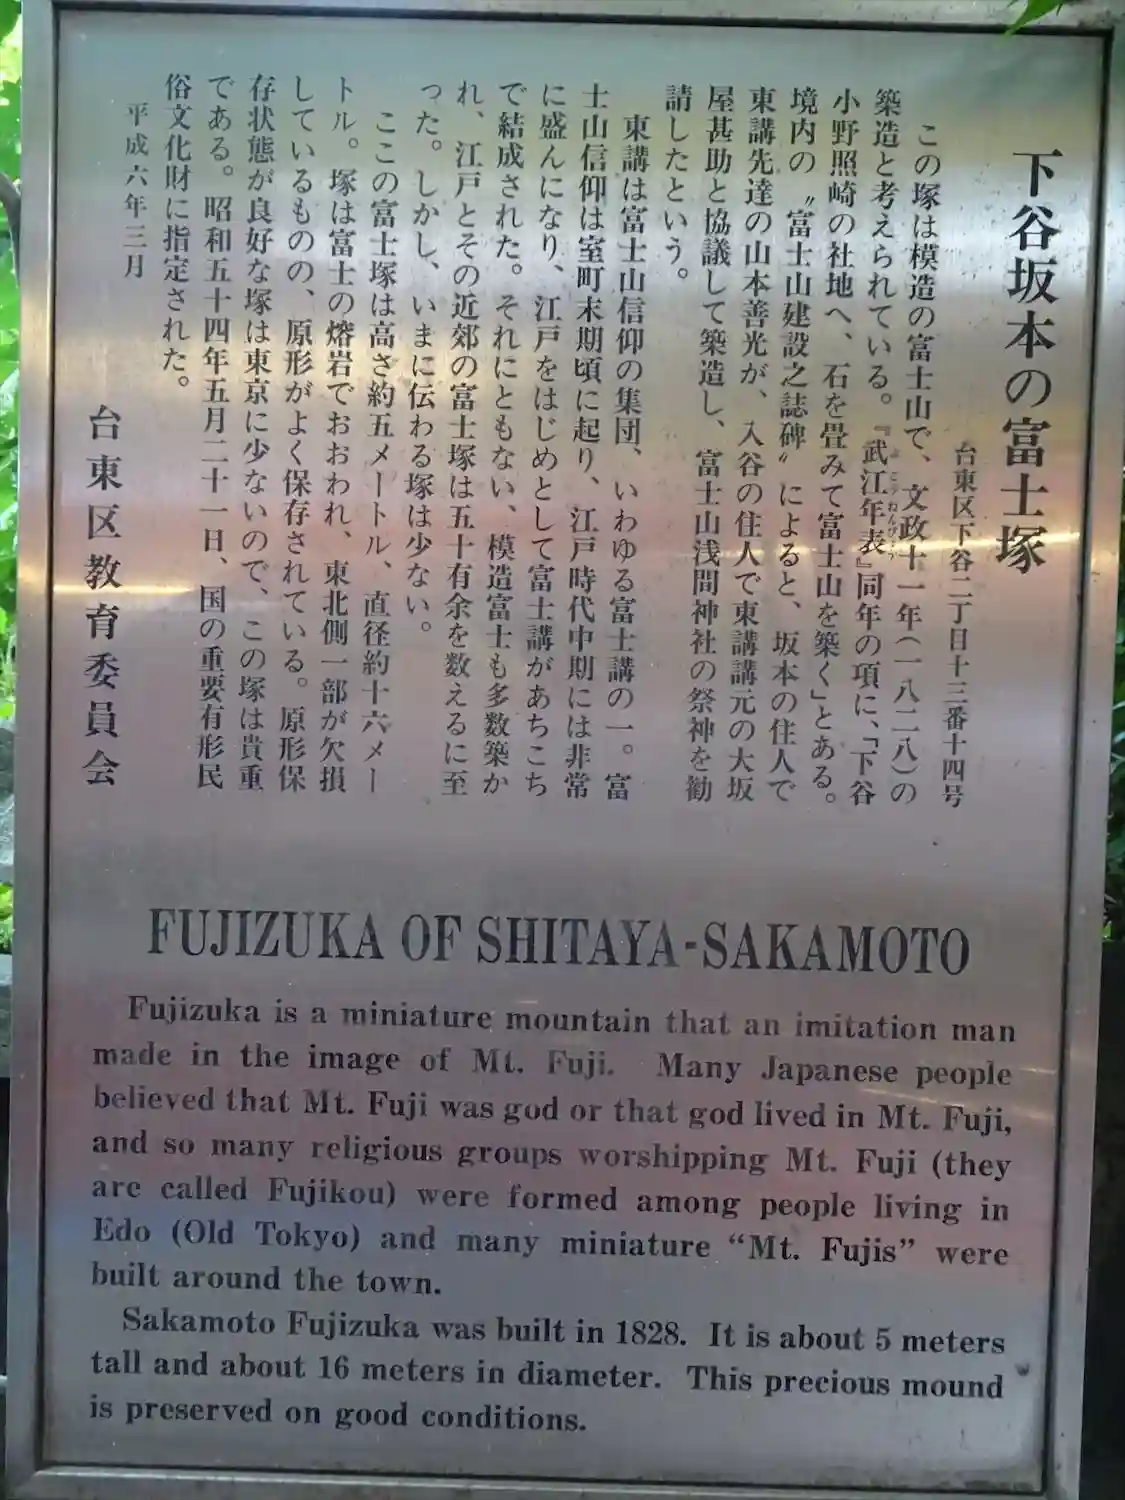 下谷坂本の富士塚
台東区下谷二丁目十三番十四号
この塚は模造の富士山で、文政十一年（一八二八）の
築造と考えられている。『武江年表』同年の項に、「下谷
小野照崎の社地へ、石を畳みて富士山を築く」とある。
境内の〝富士山建設之誌碑〟によると、坂本の住人で
東講先達の山本善光が、入谷の住人で東講講元の大坂
屋甚助と協議して築造し、富士山浅間神社の祭神を勧
請したという。
東講は富士山信仰の集団、いわゆる富士講の一。富
士山信仰は室町末期頃に起り、江戸時代中期には非常
に盛んになり、江戸をはじめとして富士講があちこち
で結成された。それにともない、模造富士も多数築か
れ、江戸とその近郊の富士塚は五十有余を数えるに至
った。しかし、いまに伝わる塚は少ない。
ここの富士塚は高さ約五メートル、直径約十六メー
トル。塚は富士の熔岩でおおわれ、東北側一部が欠損
しているものの、原形がよく保存されている。原形保
存状態が良好な塚は東京に少ないので、この塚は貴重
である。昭和五十四年五月二十一日、国の重要有形民
俗文化財に指定された。
平成六年三月
台東区教育委員会
FUJIZUKA OF SHITAYA-SAKAMOTO
Fujizuka is a miniature mountain that an imitation man
made in the image of Mt. Fuji. Many Japanese people
believed that Mt. Fuji was god or that god lived in Mt. Fuji,
and so many religious groups worshipping Mt. Fuji (they
are called Fujikou) were formed among people living in
Edo (Old Tokyo) and many miniature “Mt. Fujis” were
built around the town.
Sakamoto Fujizuka was built in 1828. It is about 5 meters
tall and about 16 meters in diameter. This precious mound
is preserved on good conditions.